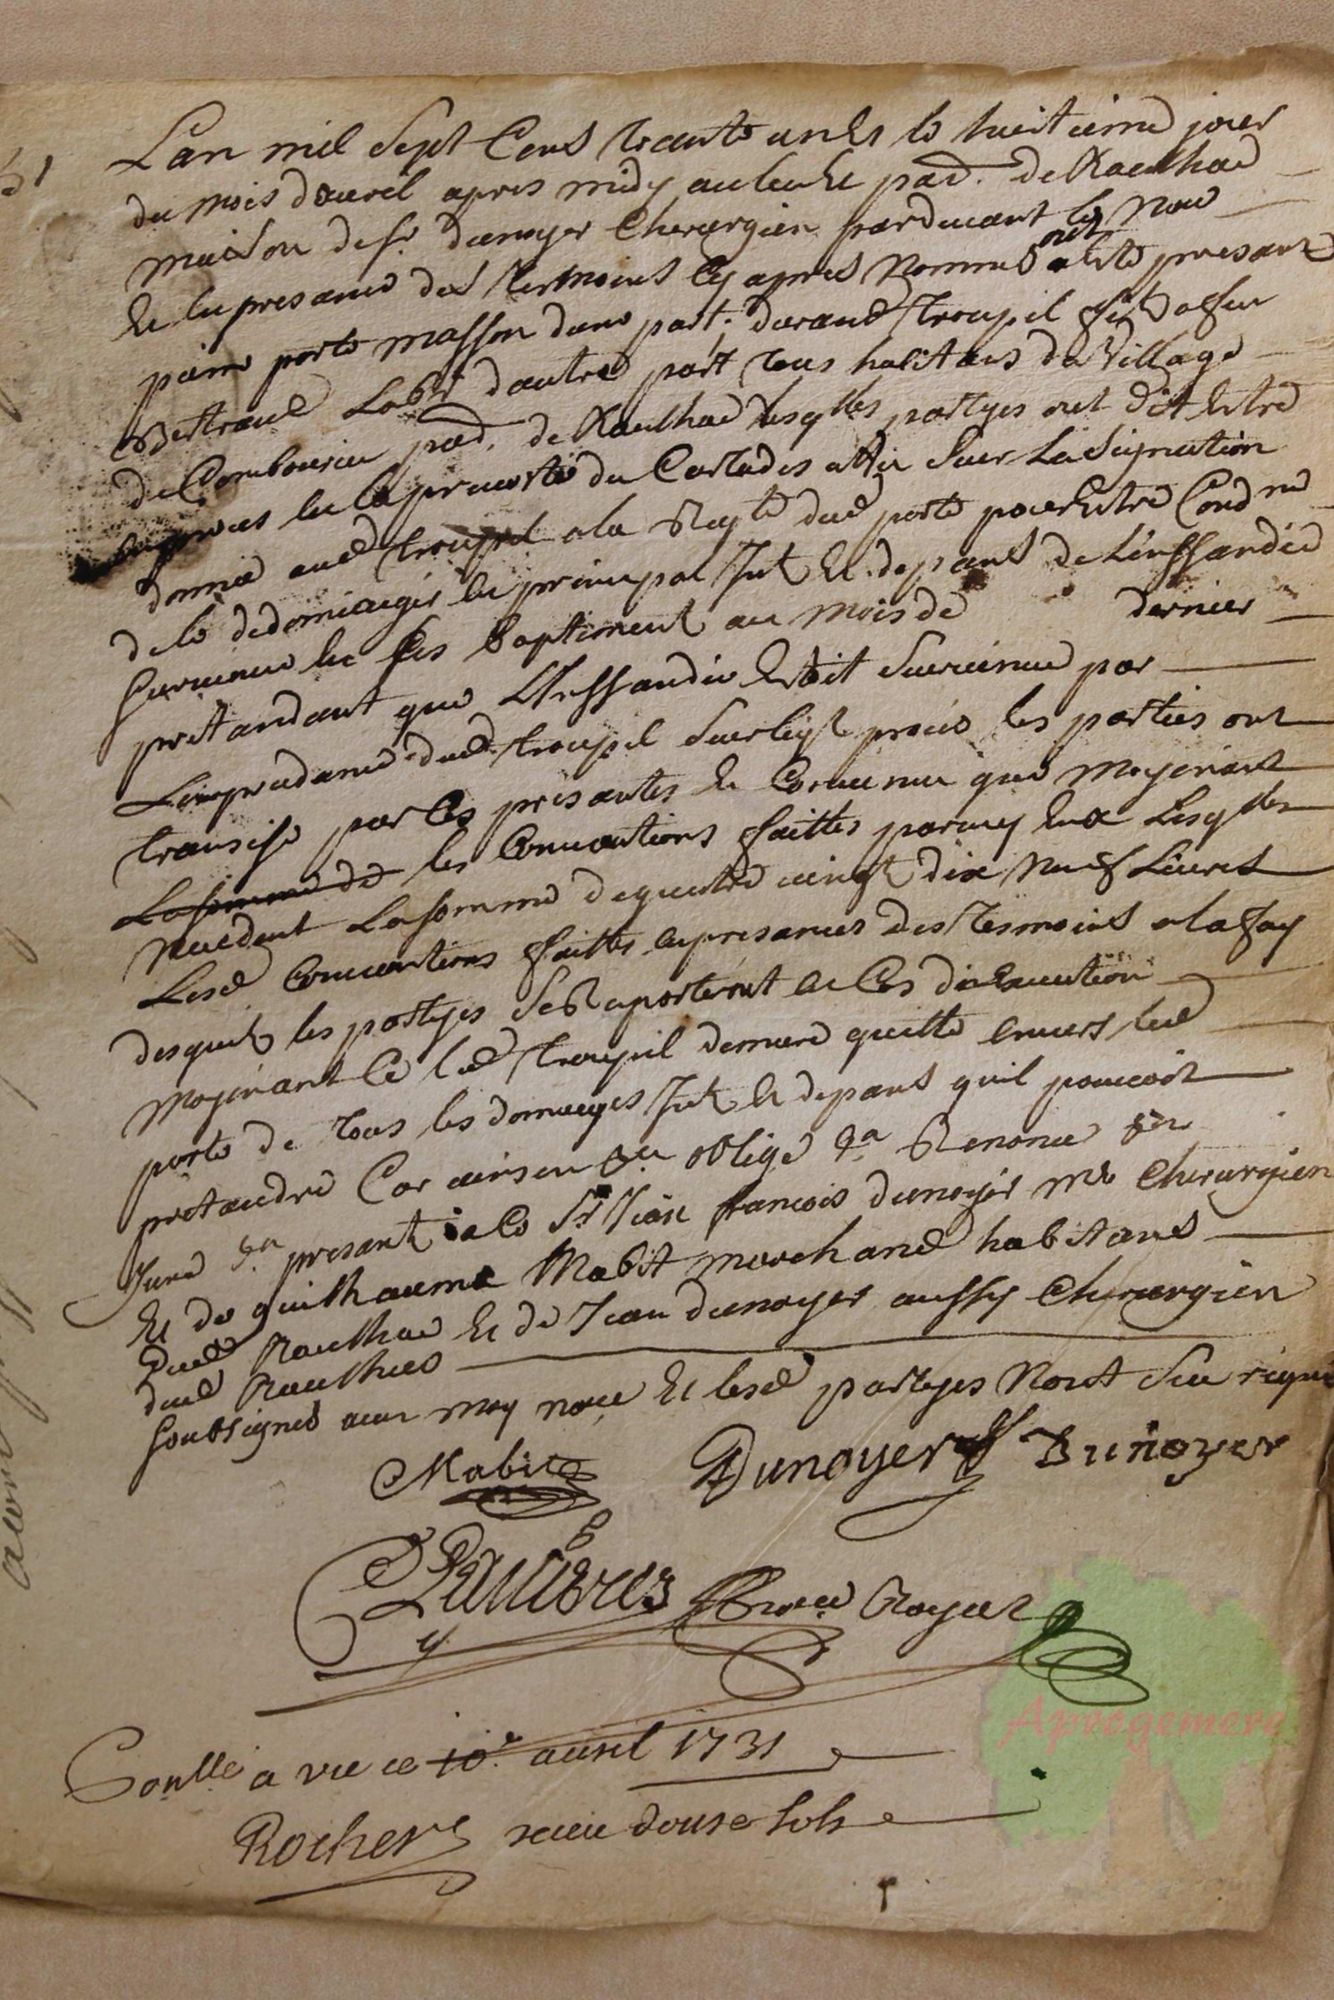 Lan mil Sept Cens trante un et le huitieme jour
du mois davril apres midy au lieu et par. de Raulhac
maison de sr dunoyer Cherurgien pardevant le nore
et en presance des tesmoins cy apres nommes ont este presant
pierre porte masson dune part. durand troupil fils dafeu
Bertrand Labr dautre part tous habitans du village
de Combourieu par. de Raulhac lesqlles partyes ont dit Estre
en proces en la prevosté du Carlades attn Sur La signation
donné aud troupil a la Reqte dud porte pour Estre Condne
de le dedomaiger en principal Int et depans de Linssandie
survenu en ses baptiment au mois de dernier
pretandant que LInssandie Estoit survenue par
Limprudance dud troupil sur leql proces les parties ont
transigé par Ces presantes et Convenu que moyenant
La somme de les Convantions faittes parmy Eux Lesqlles
nexedent La somme de quatre vingt dix neuf Livres
Lesd Convantions faittes en presances des tesmoins a la foy
desquels les partyes se Raporteront en Cas dinexecution
moyenant Ce led troupil demure quitte envers led
porte de tous les domaiges Int et depans quil pouvoit
pretandre Car ainsin &a obligé &a Renoncé &a
Juré &a presant a Ce Sr Jean francois dunoyer me Cherurgien
Et de guilhaume Mabit marchand habitans
dud Raulhac et de Jean dunoyer aussy Cherurgien
dud Raulhac
soubsignes avec moy nore et lesd partyes nont sceu signe
Mabit Dunoyer Dunoyer
nore Royal
Conlle a vic ce 10e auril 1731
Rocher receu douse sols
Aprogemere